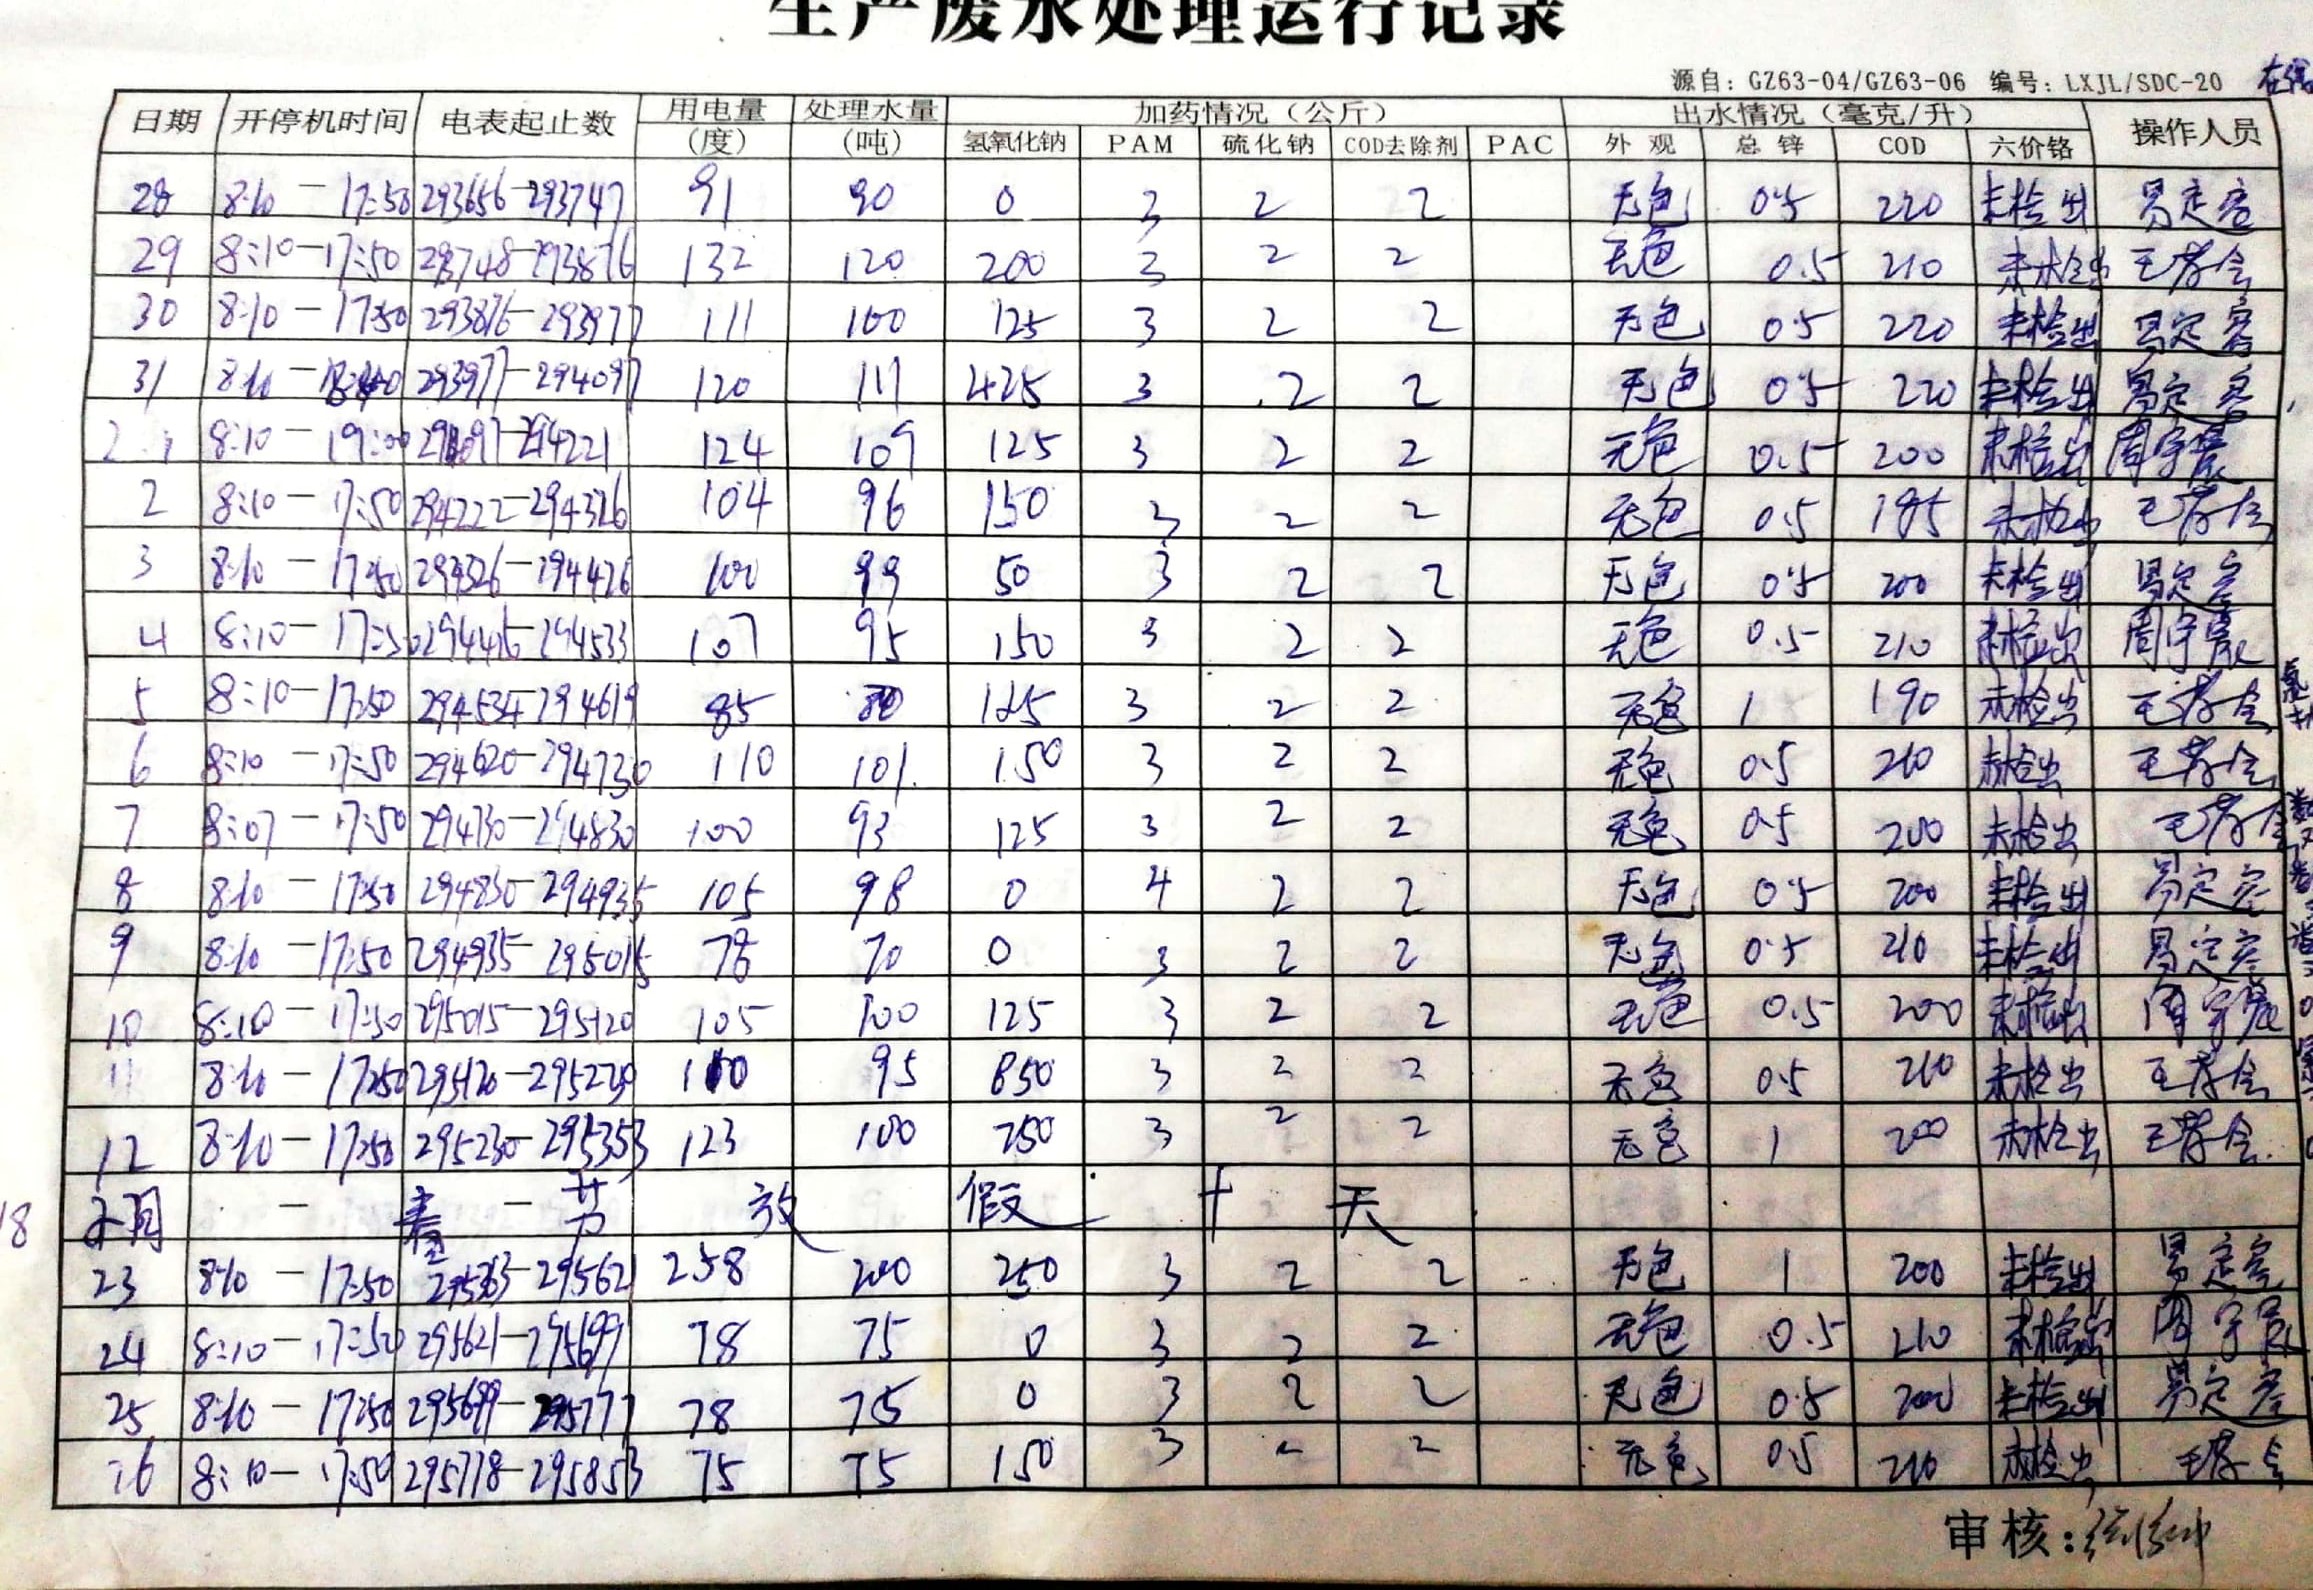 生产废水处理运行记录
源自：GZ63-04/GZ63-06 编号：LXJL/SDC-20
日期 开停机时间 电表起止数 用电量（度） 处理水量（吨） 加药情况（公斤） 出水情况（毫克/升） 操作人员
氢氧化钠 PAM 硫化钠 COD去除剂 PAC 外观 总锌 COD 六价铬
28 8:10—17:50 293656-293747 91 90 0 3 2 2 无色 0.5 220 未检出 易定容
29 8:10—17:50 293748-293876 132 120 200 3 2 2 无色 0.5 210 未检出
30 8:10—17:50 293876-293977 111 100 125 3 2 2 无色 0.5 220 未检出 易定容
31 8:10— 293977-294097 120 117 425 3 2 2 无色 0.5 220 未检出 易定容
2.1 8:10—19:00 294097-294221 124 109 125 3 2 2 无色 0.5 200 未检出
2 8:10—17:50 294222-294326 104 96 150 3 2 2 无色 0.5 195 未检出
3 8:10—17:50 294326-294426 100 99 50 3 2 2 无色 0.5 200 未检出 易定容
4 8:10—17:50 294426-294533 107 95 150 3 2 2 无色 0.5 210 未检出
5 8:10—17:50 294534-294619 85 125 3 2 2 无色 1 190 未检出
6 8:10—17:50 294620-294730 110 101 150 3 2 2 无色 0.5 210 未检出
7 8:07—17:50 294730-294830 100 93 125 3 2 2 无色 0.5 200 未检出
8 8:10—17:50 294830-294935 105 98 0 4 2 2 无色 0.5 200 未检出 易定容
9 8:10—17:50 294935-295015 78 70 0 3 2 2 无色 0.5 210 未检出 易定容
10 8:10—17:50 295015-295120 105 100 125 3 2 2 无色 0.5 200 未检出
11 8:10—17:50 295120-295230 110 95 850 3 2 2 无色 0.5 210 未检出
12 8:10—17:50 295230-295353 123 100 250 3 2 2 无色 1 200 未检出
18 — 春节 放 假 十 天
23 8:10—17:50 295363-295621 258 200 250 3 2 2 无色 1 200 未检出 易定容
24 8:10—17:50 295621-295699 78 75 0 3 2 2 无色 0.5 210 未检出
25 8:10—17:50 295699-295777 78 75 0 3 2 2 无色 0.5 200 未检出 易定容
26 8:10—17:50 295778-295853 75 75 150 3 2 2 无色 0.5 210 未检出
审核：